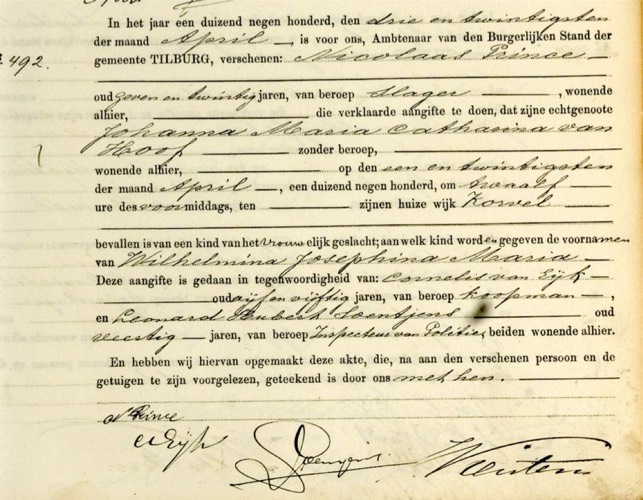 In het jaar één duizend negen honderd, den drie en twintigsten
der maand April, is voor ons, Ambtenaar van den Burgerlijken Stand der
492.
gemeente TILBURG, verschenen: Nicolaas Prince
oud zeven en twintig jaren, van beroep slager, wonende
alhier, die verklaarde aangifte te doen, dat zijne echtgenoote
Johanna Maria Catharina van
Hoof zonder beroep,
wonende alhier, op den een en twintigsten
der maand April, een duizend negen honderd, om twaalf
ure des voormiddags, ten zijnen huize wijk Korvel
bevallen is van een kind van het vrouwelijk geslacht; aan welk kind worden gegeven de voornamen
van Wilhelmina Josephina Maria
Deze aangifte is gedaan in tegenwoordigheid van: Cornelis van Eijk
oud vijf en vijftig jaren, van beroep koopman,
en Leonard Hubert Soentjens oud
veertig jaren, van beroep Inspecteur van Politie, beiden wonende alhier.
En hebben wij hiervan opgemaakt deze akte, die, na aan den verschenen persoon en de
getuigen te zijn voorgelezen, geteekend is door ons met hen.
N Prince